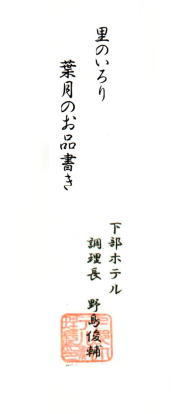 里のいろり
葉月のお品書き
下部ホテル
調理長 野島俊輔